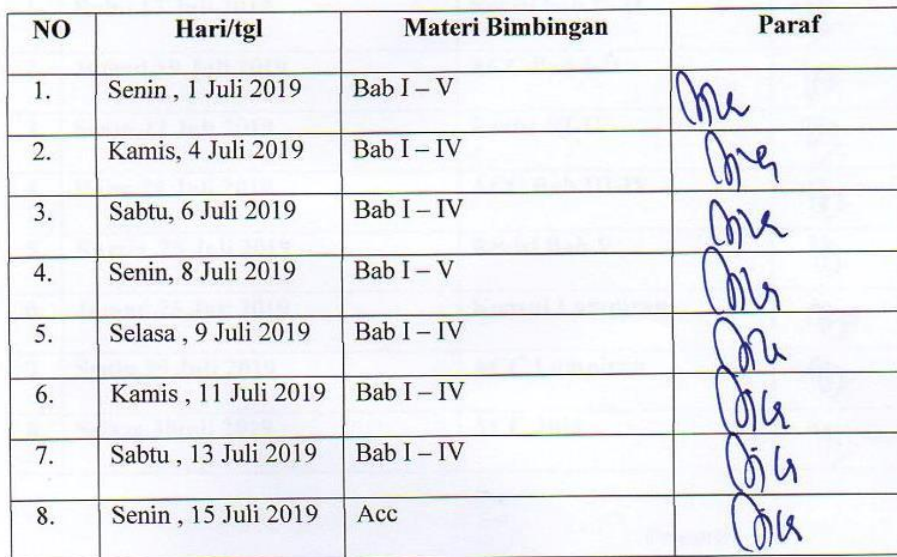 NO Hari/tgl Materi Bimbingan Paraf
1. Senin , 1 Juli 2019 Bab I – V
2. Kamis, 4 Juli 2019 Bab I – IV
3. Sabtu, 6 Juli 2019 Bab I – IV
4. Senin, 8 Juli 2019 Bab I – V
5. Selasa , 9 Juli 2019 Bab I – IV
6. Kamis , 11 Juli 2019 Bab I – IV
7. Sabtu , 13 Juli 2019 Bab I – IV
8. Senin , 15 Juli 2019 Acc